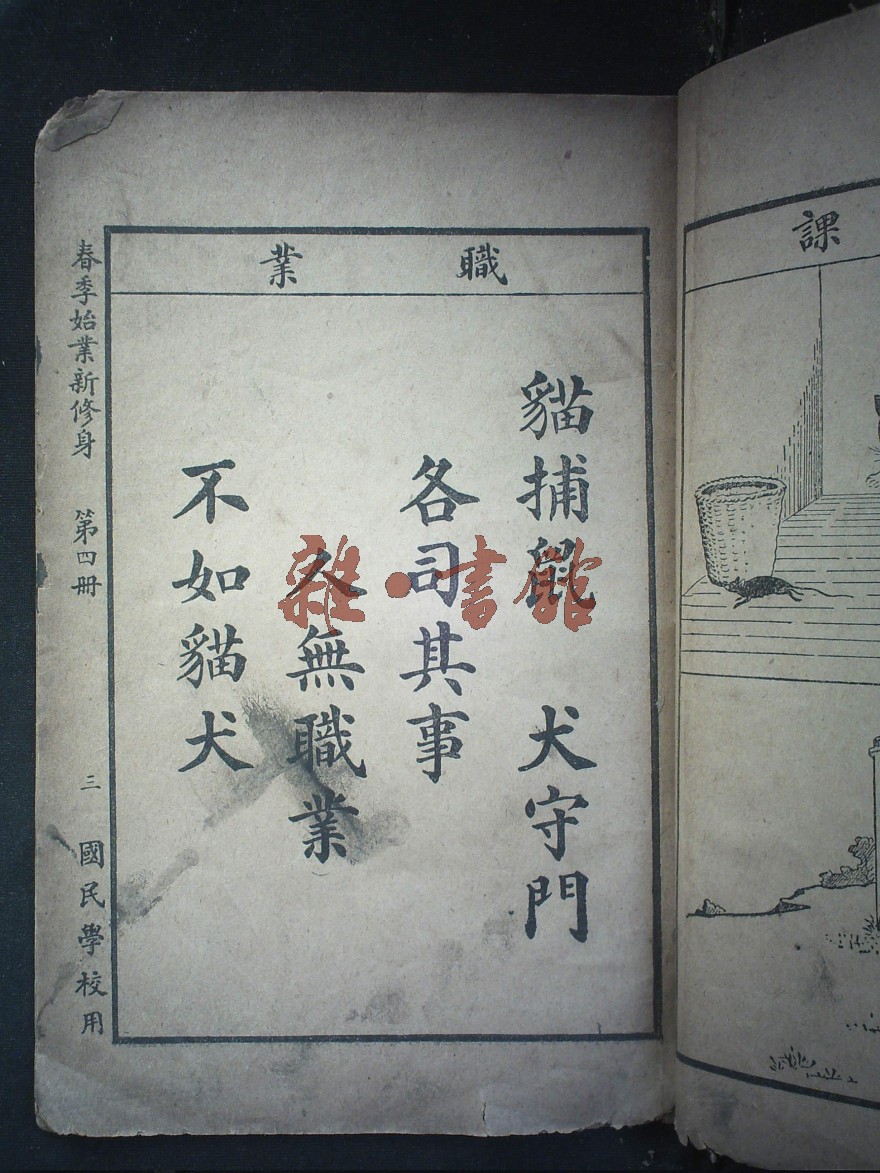 課
職業
貓捕鼠　犬守門
各司其事
人無職業
不如貓犬
春季始業新修身　第四冊　三　國民學校用
雜·書館